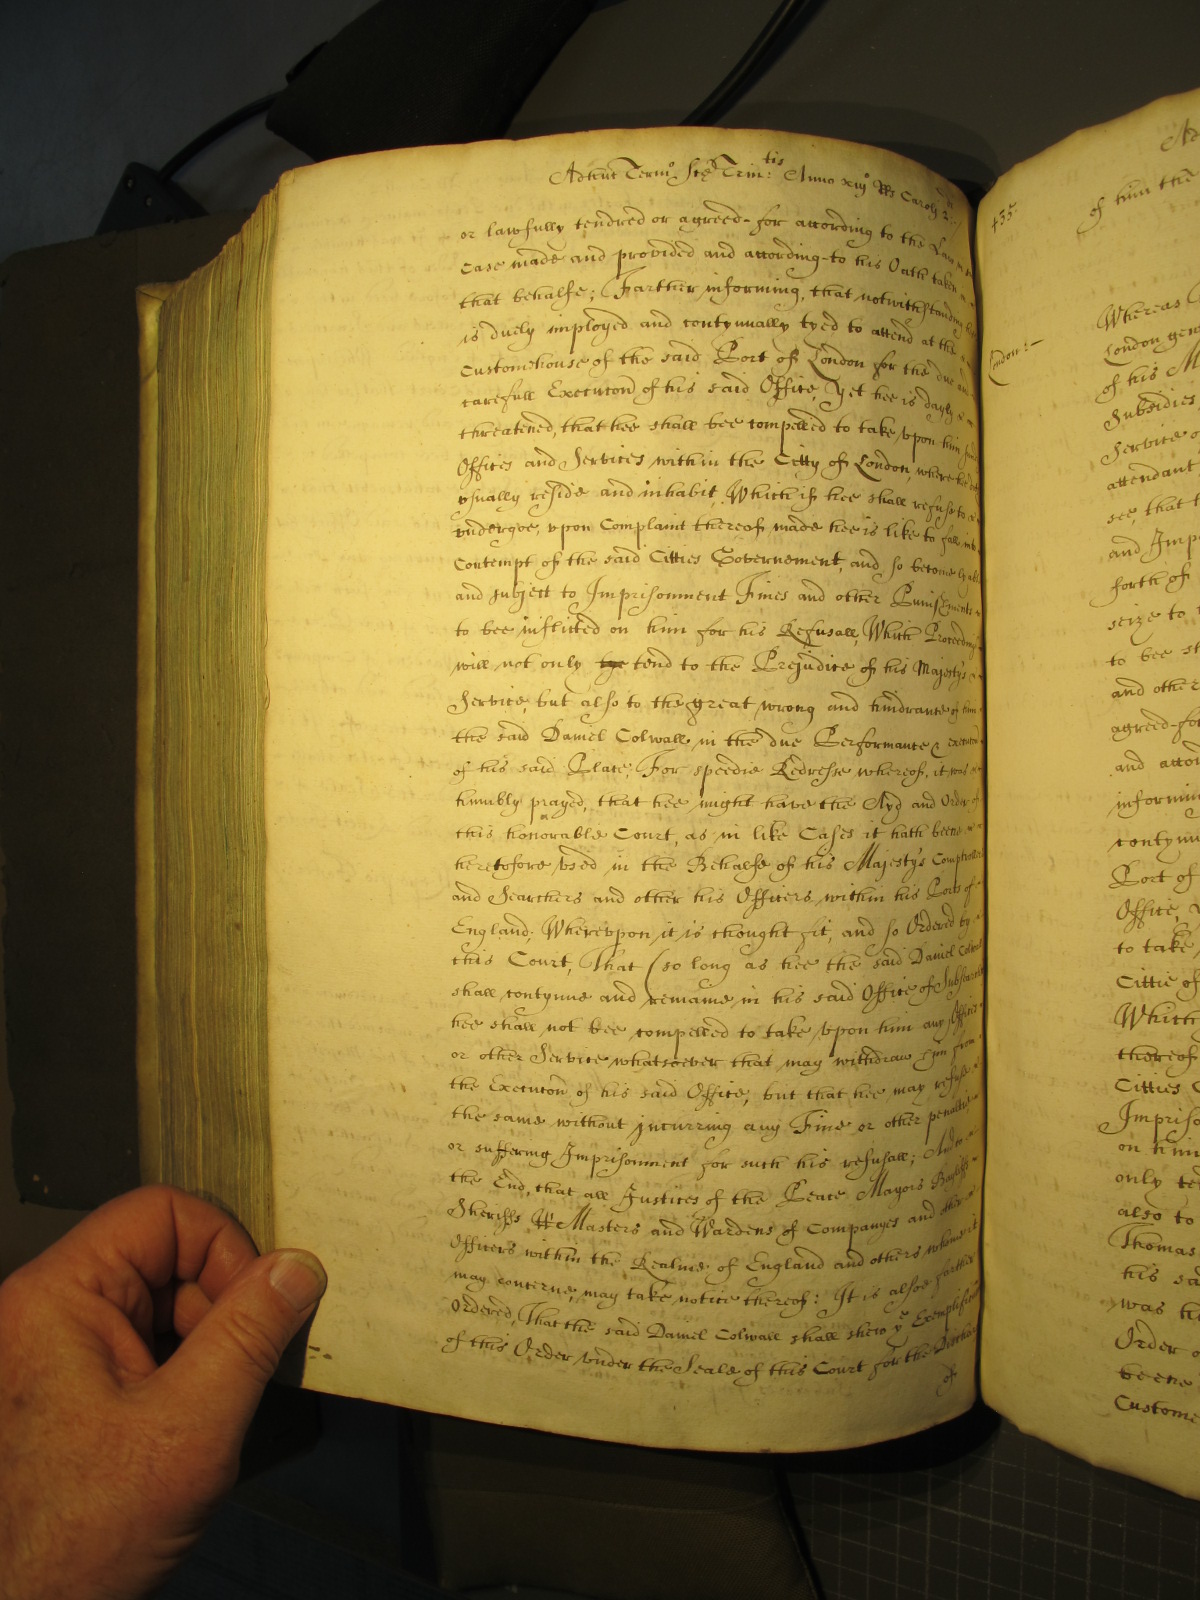 Adhuc Termo Scte Trin:tis Anno xiijo Rs Caroli 2.
or lawfully tendred or agreed-for according to the Law in
Case made and provided and according-to his Oath taken in
that behalfe; Farther informing, that notwithstanding hee
is duely imployed and contynually tyed to attend at the
Customehouse of the said Port of London for the due and
carefull Execucon of his said Office, Yet hee is dayly
threatened, that hee shall bee compelled to take vpon him
Offices and Services within the Citty of London, where hee doth
vsually reside and inhabit, Which if hee shall refuse to
vndergoe, vpon Complaint thereof made hee is like to fall into
Contempt of the said Citties Governement, and so become lyable
and subject to Imprisonment Fines and other Punishments
to bee inflicted on him for his Refusall, Which Proceedings
will not only tend to the Prejudice of his Majestys
Service, but also to the great wrong and hindrance of him
the said Daniel Colwall in the due Performance & execucon
of his said Place; For speedie Redresse whereof, it was
humbly prayed, that hee might have the Ayd and Order of
this honorable Court, as in like Cases it hath beene
heretofore vsed in the Behalfe of his Majestys Comptrollers
and Searchers and other his Officers within his Ports of
England; Wherevpon it is thought fit, and so Ordered by
this Court, That (so long as hee the said Daniel Colwall
shall contynue and remaine in his said Office of
hee shall not bee compelled to take vpon him any Office
or other Service whatsoever that may withdraw him from
the Execucon of his said Office; but that hee may refuse
the same without incurring any Fine or other penaltie
or suffering Imprisonment for such his refusall; And to
the End, that all Justices of the Peace Mayors Bayliffs
Sheriffs Masters and Wardens of Companyes and other
Officers within the Realme of England and others whome it
may concerne, may take notice thereof: It is alsoe further
Ordered, That the said Daniel Colwall shall shew ye Exemplificacon
of this Order vnder the Seale of this Court for the
of
435
London:
of him the
Whereas
London
of his
Subsidies
Service
attendant
see, that
and
forth of
seize to
to bee
and other
agreed-for
and
informing
Port of
Office,
to take
Cittie of
Which
thereof
Citties
on him
only
also to
Thomas
his
was
Order
beene